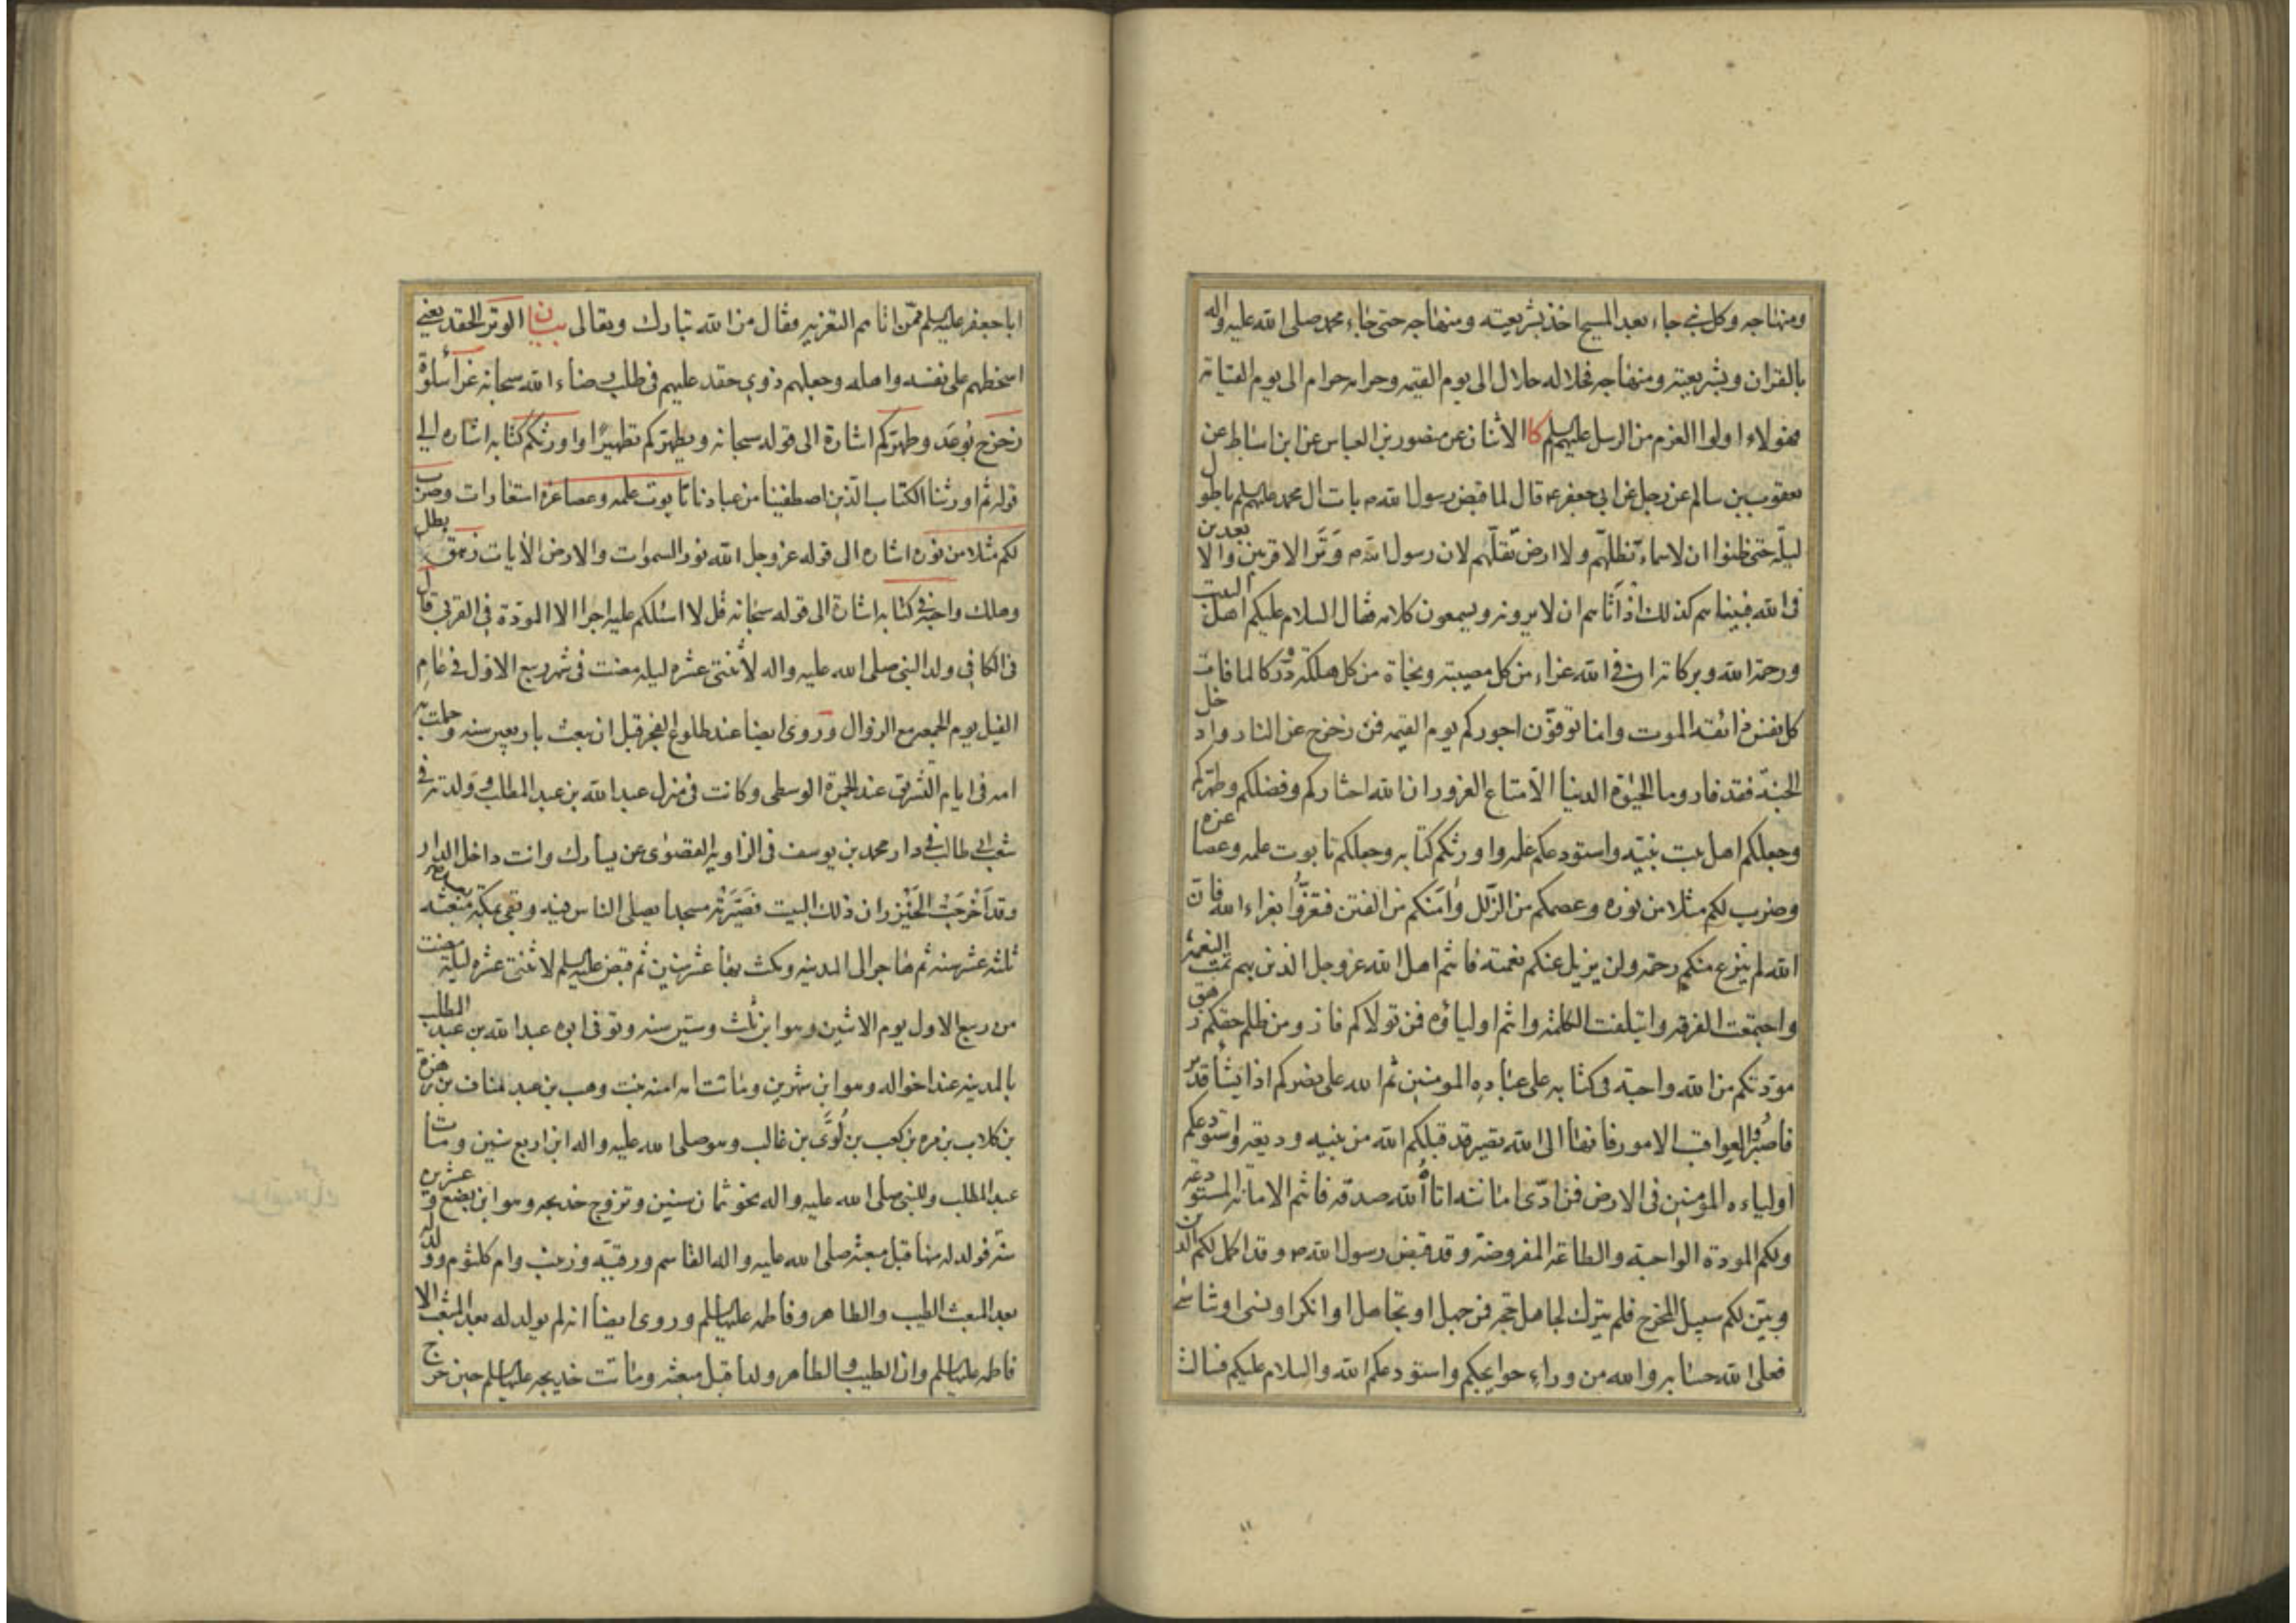 ومنهاجه وكل نبي جاء بعد المسيح اخذ بشريعته ومنهاجه حتى جاء محمد صلى الله عليه واله
بالقران وبشريعته ومنهاجه فحلاله حلال الى يوم القيمه وحرامه حرام الى يوم القيامة
فهؤلاء اولوا العزم من الرسل عليهم السلم كا الاثنان عن منصور بن العباس عن ابن اسباط عن
يعقوب بن سالم عن رجل عن ابي جعفر ع قال لما قبض رسول الله ص بات ال محمد عليهم السلم باطول
ليله حتى ظنوا ان لا سماء تظلهم ولا ارض تقلهم لان رسول الله ص وتر الاقربين والابعدين
في الله فبينا هم كذلك اذ اتاهم ات لا يرونه ويسمعون كلامه فقال السلام عليكم اهل البيت
ورحمة الله وبركاته ان في الله عزاء من كل مصيبة ونجاة من كل هلكة ودركا لما فات
كل نفس ذائقة الموت وانما توفون اجوركم يوم القيمه فمن زحزح عن النار وادخل
الجنة فقد فاز وما الحيوة الدنيا الا متاع الغرور ان الله اختاركم وفضلكم وطهركم
وجعلكم اهل بيت نبيه واستودعكم علمه واورثكم كتابه وجعلكم تابوت علمه وعصا عزه
وضرب لكم مثلا من نوره وعصمكم من الزلل وامنكم من الفتن فتعزوا بعزاء الله فان
الله لم ينزع منكم رحمته ولن يزيل عنكم نعمته فانتم اهل الله عز وجل الذين بهم تمت النعمة
واجتمعت الفرقه وايتلفت الكلمة وانتم اولياؤه فمن تولاكم فاز ومن ظلم حقكم زهق
مودتكم من الله واجبة في كتابه على عباده المومنين ثم الله على نصركم اذا يشأ قدير
فاصبروا لعواقب الامور فانها الى الله تصير قد قبلكم الله من نبيه وديعة واستودعكم
اولياءه المؤمنين في الارض فمن ادى امانته اتاه الله صدقه فانتم الامانة المستودعة
ولكم المودة الواجبة والطاعة المفروضة وقد قبض رسول الله ص وقد اكمل لكم الدين
وبين لكم سبيل المخرج فلم يترك لجاهل حجة فمن جهل او تجاهل او انكر او نسي او تناسى
فعلى الله حسابه والله من وراء حوايجكم واستودعكم الله والسلام عليكم فسالت
ابا جعفر عليه السلم ممن اتاهم التعزيه فقال من الله تبارك وتعالى بيان الوتر الحقد يعني
اسخطهم على نفسه واهله وجعلهم ذوي حقد عليهم في طلب رضاء الله سبحانه
زحزح بوعد وطهركم اشارة الى قوله سبحانه ويطهركم تطهيرا واورثكم كتابه اشاره الى
قوله ثم اورثنا الكتاب الذين اصطفينا من عبادنا تابوت علمه وعصا عزه استعارات وضرب
لكم مثلا من نوره اشاره الى قوله عز وجل الله نور السموات والارض الايات زهق بطل
وهلك واجبة في كتابه اشارة الى قوله سبحانه قل لا اسئلكم عليه اجرا الا المودة في القربى قال
في الكافي ولد النبي صلى الله عليه واله لاثنتى عشره ليله مضت في شهر ربيع الاول في عام
الفيل يوم الجمعه مع الزوال وروى ايضا عند طلوع الفجر قبل ان يبعث باربعين سنه وحملت به
امه في ايام التشريق عند الجمرة الوسطى وكانت في منزل عبد الله بن عبد المطلب وولدته في
شعب ابي طالب في دار محمد بن يوسف في الزاويه القصوى عن يسارك وانت داخل الدار
وقد اخرجت الخيزران ذلك البيت فصيرته مسجدا يصلى الناس فيه وبقي بمكة بعد مبعثه
ثلثة عشر سنه ثم هاجر الى المدينه ومكث بها عشر سنين ثم قبض عليه السلم لاثنتى عشره ليلة مضت
من ربيع الاول يوم الاثنين وهو ابن ثلث وستين سنه وتوفي ابوه عبد الله بن عبد المطلب
بالمدينه عند اخواله وهو ابن شهرين وماتت امه امنه بنت وهب بن عبد مناف بن زهرة
بن كلاب بن مره بن كعب بن لوى بن غالب وهو صلى الله عليه واله ابن اربع سنين ومات
عبد المطلب وللنبي صلى الله عليه واله نحو ثمان سنين وتزوج خديجه وهو ابن بضع وعشرين
سنة فولد له منها قبل مبعثه صلى الله عليه واله القاسم ورقيه وزينب وام كلثوم وولد له
بعد المبعث الطيب والطاهر وفاطمه عليها السلم وروى ايضا انه لم يولد له بعد المبعث الا
فاطمه عليها السلم وان الطيب والطاهر ولدا قبل مبعثه وماتت خديجه عليها السلم حين خرج